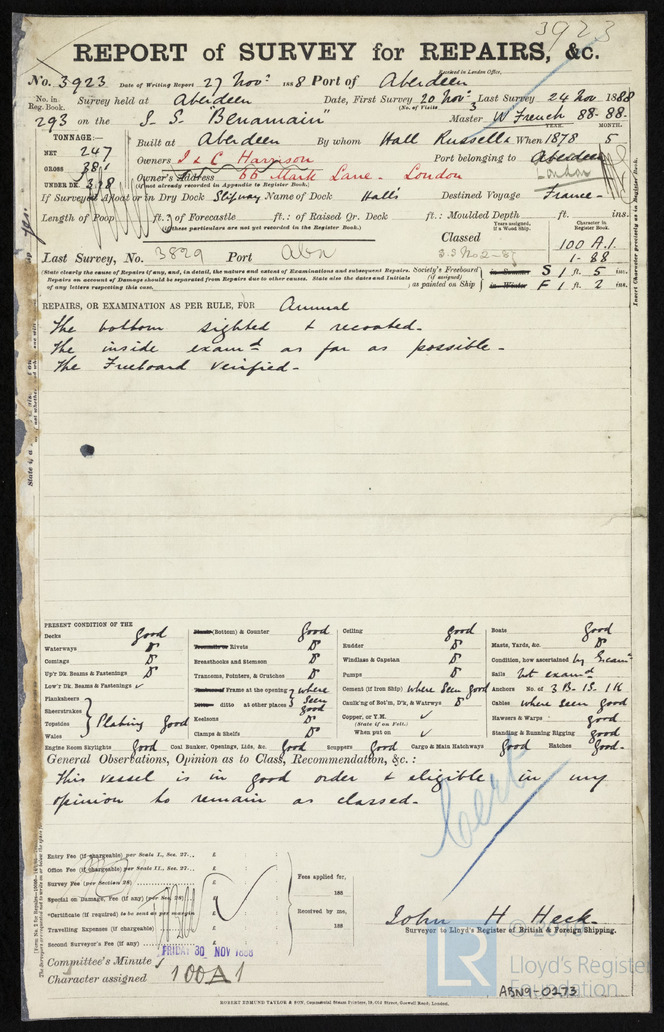 3923
REPORT of SURVEY for REPAIRS, &c.
Received in London Office,
No. 3923 Date of Writing Report 27 Novr 1888 Port of Aberdeen
No. in Reg. Book. Survey held at Aberdeen Date, First Survey 20 Novr Last Survey 24 Nov 1888
(No. of Visits 3)
293 on the S. S. "Benamain" Master W French 88-88-
YEAR. MONTH.
TONNAGE:— Built at Aberdeen By whom Hall Russell & When 1878 5
NET 247
GROSS 381
UNDER DK. 348
Owners J & C Harrison Port belonging to Aberdeen
London
Owner's Address 66 Mark Lane - London
(if not already recorded in Appendix to Register Book.)
If Surveyed Afloat or in Dry Dock Slipway Name of Dock Hall's Destined Voyage France-
Length of Poop ft.: of Forecastle ft.: of Raised Qr. Deck ft.: Moulded Depth ft. ins.
(if these particulars are not yet recorded in the Register Book.)
Years assigned, if a Wood Ship. Character in Register Book.
Classed 100 A.1.
Last Survey, No. 3829 Port Abn S.S. No 2-87 1-88
(State clearly the cause of Repairs if any, and, in detail, the nature and extent of Examinations and subsequent Repairs.
Repairs on account of Damage should be separated from Repairs due to other causes. State also the dates and Initials
of any letters respecting this case.)
Society's Freeboard (if assigned) as painted on Ship
in Summer S 1 ft. 5 ins.
in Winter F 1 ft. 2 ins.
Insert Character precisely as in Register Book.
REPAIRS, OR EXAMINATION AS PER RULE, FOR Annual
The bottom sighted & recoated-
The inside examd as far as possible-
The Freeboard verified-
PRESENT CONDITION OF THE
Decks good
Waterways Do
Comings Do
Upr Dk. Beams & Fastenings Do
Low'r Dk. Beams & Fastenings ✓
Planksheers
Sheerstrakes
Topsides
Wales
Plating Good
Plank (Bottom) & Counter good
Treenails or Rivets Do
Breasthooks and Stemson Do
Transoms, Pointers, & Crutches Do
Timbers of Frame at the opening where
ditto at other places seen good
Keelsons Do
Clamps & Shelfs Do
Ceiling good
Rudder Do
Windlass & Capstan Do
Pumps Do
Cement (if from Ship) where seen good
Caulk'ng of Bot'm, D'k, & Watrwys Do
Copper, or Y.M. ✓
(State if on Felt.)
When put on ✓
Boats good
Masts, Yards, &c. Do
Condition, how ascertained by Exam
Sails not examd
Anchors No. of 3 B. 1S. 1K
Cables where seen good
Hawsers & Warps good
Standing & Running Rigging good
Engine Room Skylights good Coal Bunker, Openings, Lids, &c. good Scuppers good Cargo & Main Hatchways good Hatches good-
General Observations, Opinion as to Class, Recommendation, &c.:
This vessel is in good order & eligible in my
opinion to remain as classed-
Cert
Entry Fee (if chargeable) per Scale I., Sec. 27... £ : :
Office Fee (if chargeable) per Scale II., Sec. 27... £ : :
Survey Fee (per Section 28) £ : :
Special or Damage, Fee (if any) (per Sec. 28) £ : :
*Certificate (if required) to be sent as per margin
Travelling Expenses (if chargeable) £ : :
Second Surveyor's Fee (if any) £ : :
Fees applied for,
188
Received by me,
188
John H Heck
Surveyor to Lloyd's Register of British & Foreign Shipping.
Committee's Minute FRIDAY 30 NOV 1888
Character assigned 100A1
ROBERT EDMUND TAYLOR & SON, Commercial Steam Printers, 19, Old Street, Goswell Road, London.
LR
Lloyd's Register
Foundation
ABN9-0273